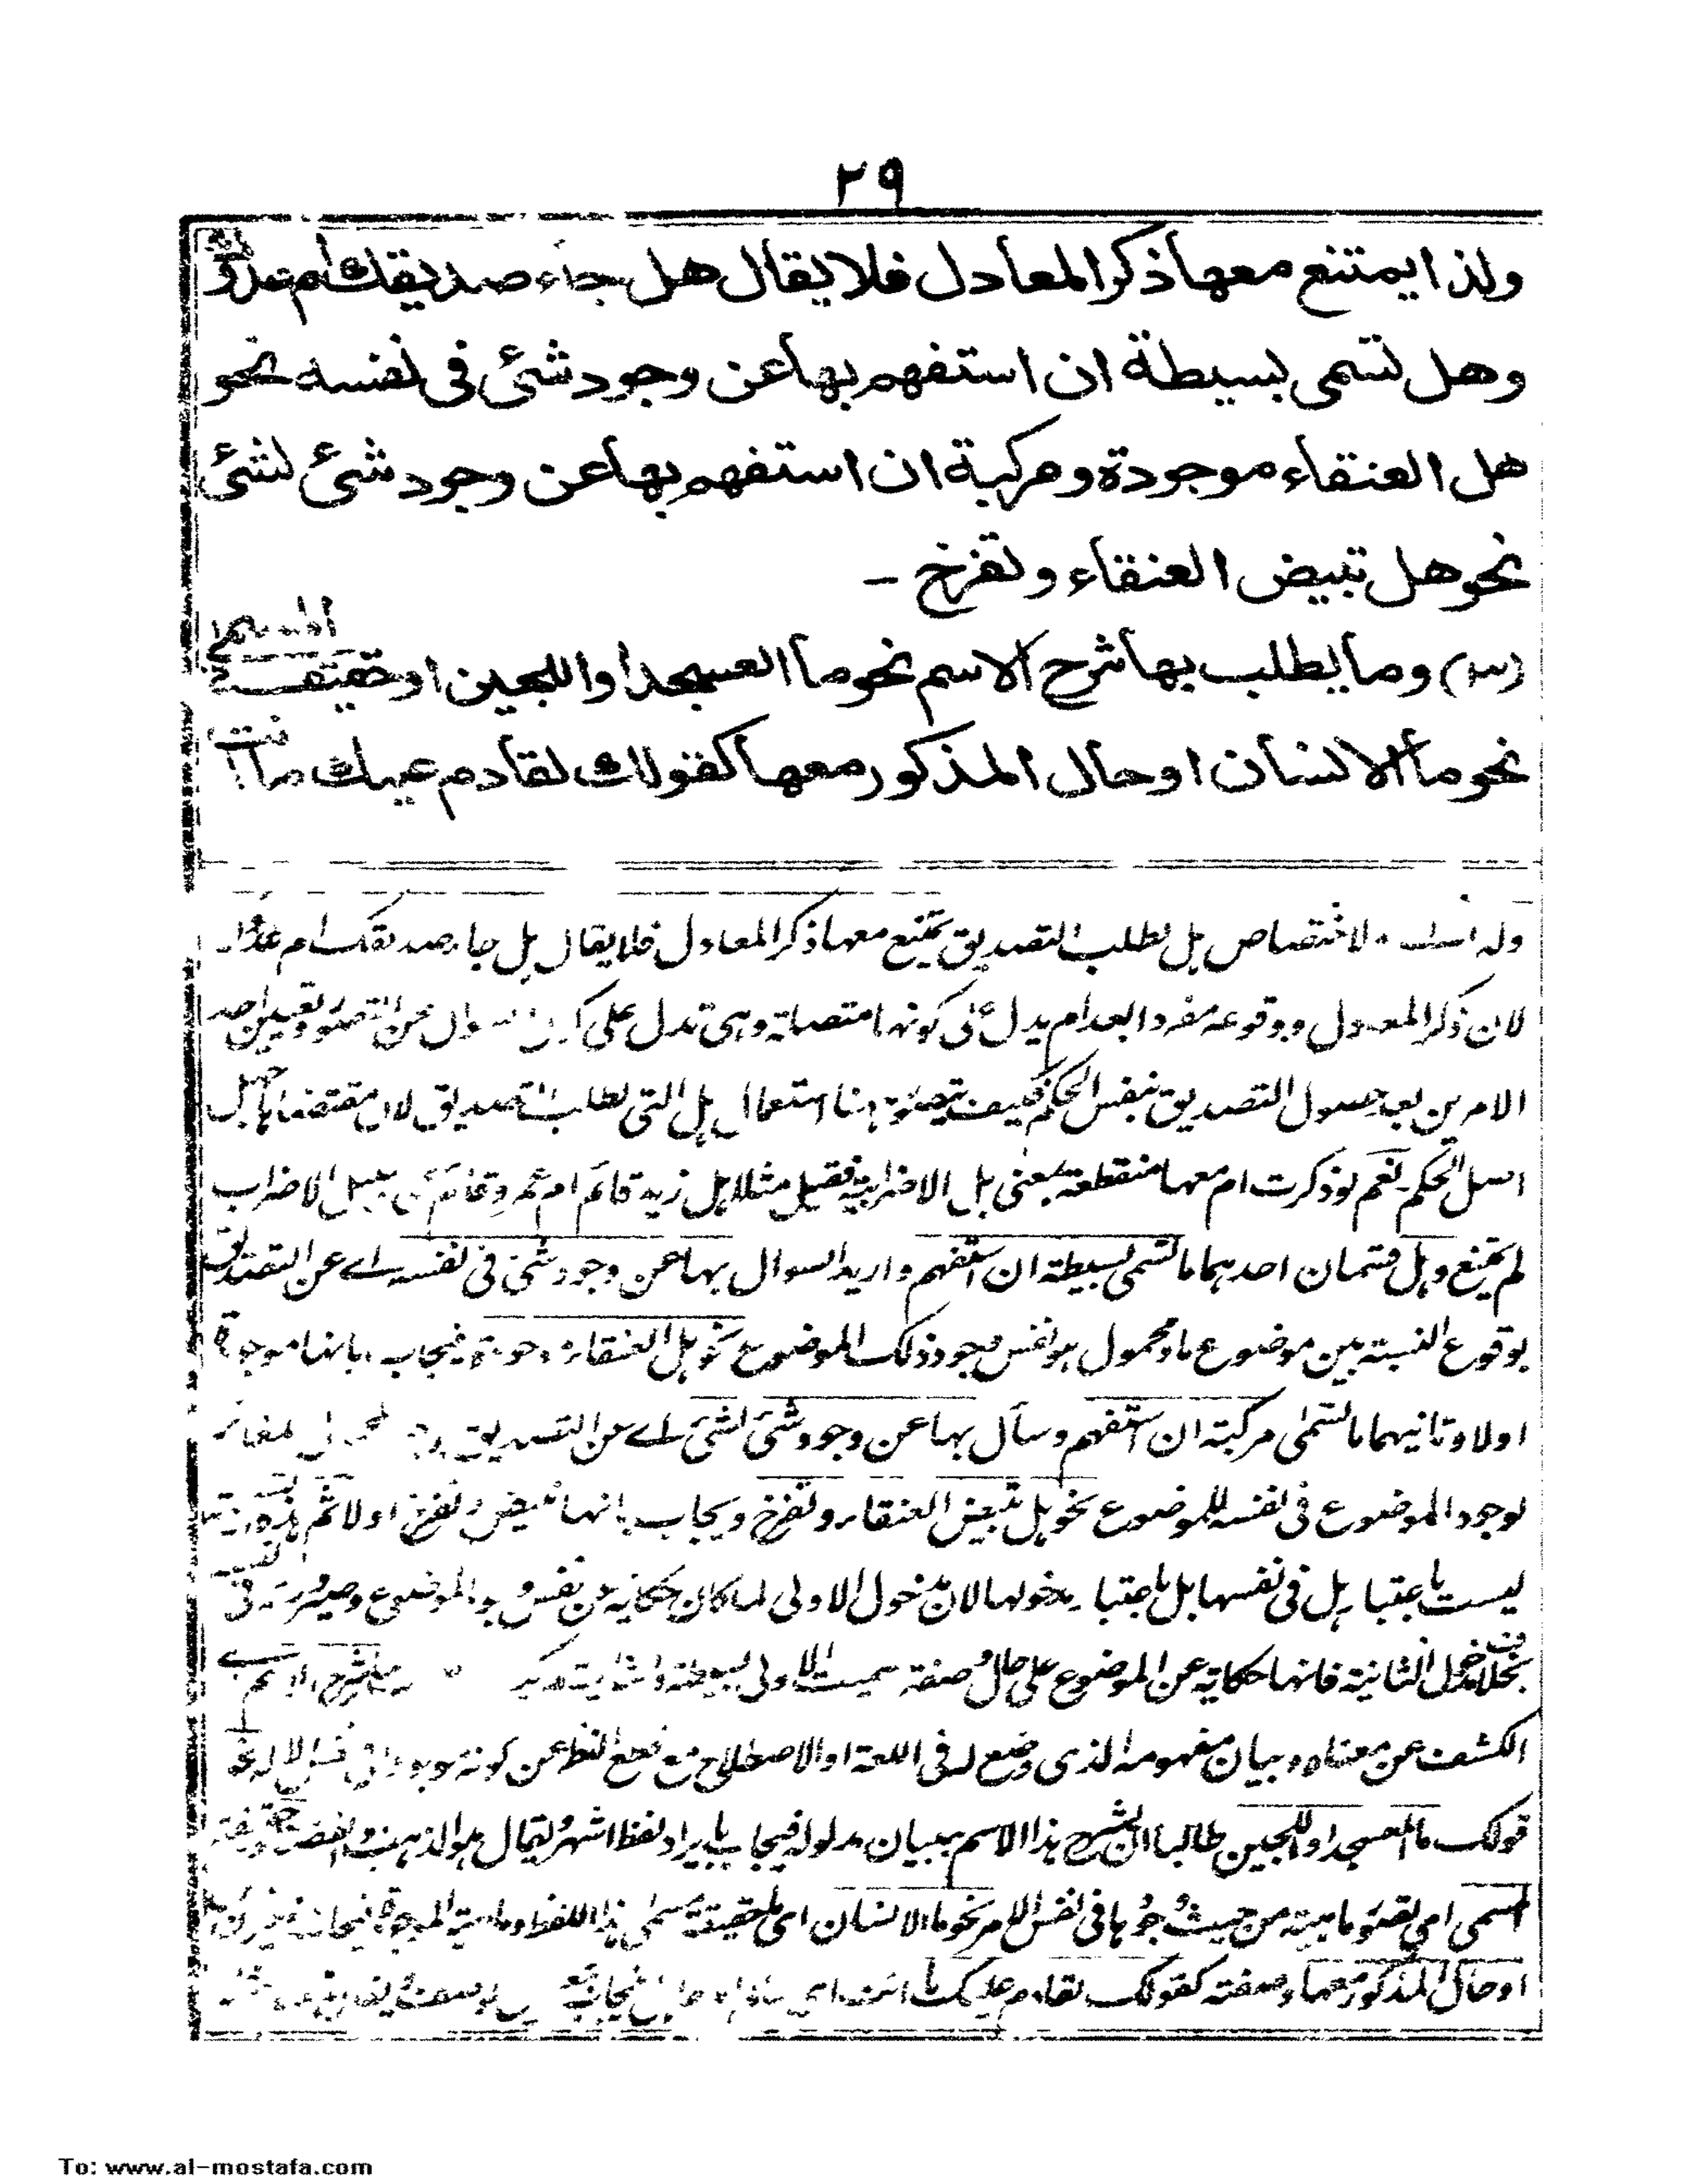 ٢٩
ولذا يمتنع معها ذكر المعادل فلا يقال هل جاء صديقك أم عدوك
وهل تسمى بسيطة ان استفهم بها عن وجود شئ فى نفسه نحو
هل العنقاء موجودة ومركبة ان استفهم بها عن وجود شئ لشئ
نحو هل تبيض العنقاء وتفرخ -
(٣) وما يطلب بها شرح الاسم نحو ما العسجد أو اللجين او حقيقة المسمى
نحو ما الانسان او حال المذكور معها كقولك لقادم عليك ما أنت
لاختصاص هل لطلب التصديق يمتنع معها ذكر المعادل فلا يقال هل جاء صديقك ام عدوك
لان ذكر المعادل ووقوعه مفردا بعد ام يدل على كونها متصلة وهى تدل على السوال عن التصور وتعيين احد
الامرين بعد حصول التصديق بنفس الحكم فكيف يتصور هنا استعمال هل التى لطلب التصديق لان مقتضاها جهل
اصل الحكم نعم لو ذكرت ام معها منقطعة بمعنى بل الاضرابية فقيل مثلا هل زيد قائم ام عمرو قائم على سبيل الاضراب
لم يمتنع وهل قسمان احدهما ما تسمى بسيطة ان استفهم واريد السوال بها عن وجود شئ فى نفسه اے عن التصديق
بوقوع النسبة بين موضوع ما ومحمول هو نفس وجود ذلك الموضوع نحو هل العنقاء موجودة فيجاب بانها موجودة
اولا وثانيهما ما تسمى مركبة ان استفهم وسأل بها عن وجود شئ لشئ اے عن التصديق
لوجود الموضوع فى نفسه للموضوع نحو هل تبيض العنقاء وتفرخ ويجاب بانها تبيض وتفرخ اولا ثم هذه
ليست باعتبار هل فى نفسها بل باعتبار مدخولها لان مدخول الاولى لما كان حكاية عن نفس الموضوع
بخلاف مدخول الثانية فانها حكاية عن الموضوع على حال وصفة سميت الاولى بسيطة والثانية شرح الاسم اے
الكشف عن معناه وبيان مفهومه الذى وضع له فى اللغة او الاصطلاح مع قطع النظر عن كونه موجودا فى نفس الامر نحو
قولك ما العسجد او اللجين طالبا ان يشرح هذا الاسم ببيان مدلوله فيجاب بايراد لفظ اشهر يقال هو الذهب والفضة او حقيقة
المسمى اى تصور ماهيته من حيث وجودها فى نفس الامر نحو ما الانسان اى ما حقيقة مسمى هذا اللفظ وماهيته الموجودة
او حال المذكور معها وصفته كقولك لقادم عليك ما انت اى
To: www.al-mostafa.com